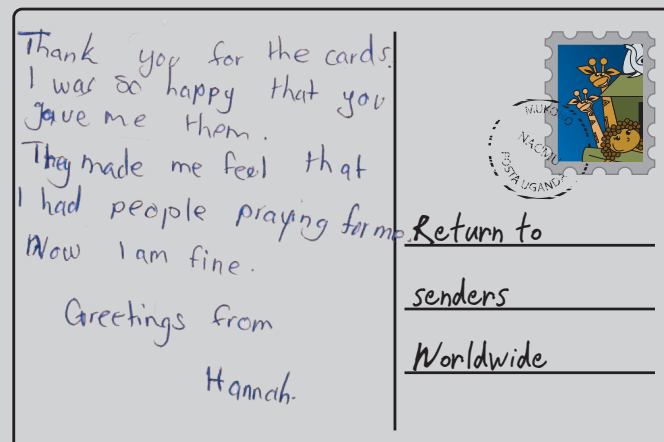 Thank you for the cards.
I was so happy that you
gave me them.
They made me feel that
I had people praying for me.
Now I am fine.
Greetings from
Hannah.
MUKONO
POSTA UGANDA
Return to
senders
Worldwide